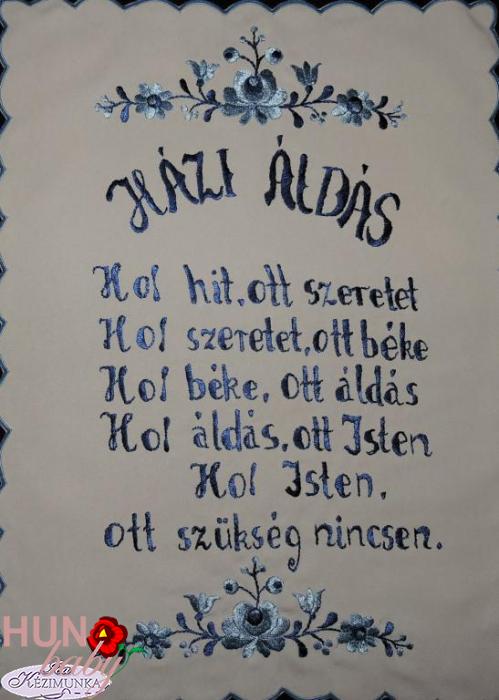 HÁZI ÁLDÁS
Hol hit, ott szeretet
Hol szeretet, ott béke
Hol béke, ott áldás
Hol áldás, ott Isten
Hol Isten,
ott szükség nincsen.
HUN
baby
KÉZIMUNKA